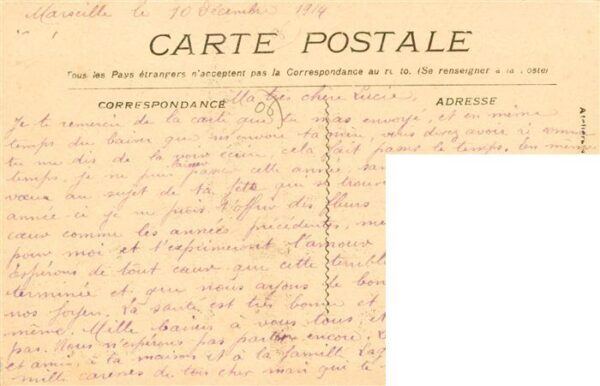 Marseille le 10 Décembre 1914
CARTE POSTALE
Tous les Pays étrangers n'acceptent pas la Correspondance au recto. (Se renseigner à la Poste)
CORRESPONDANCE
ADRESSE
Ma très chère Lucie,
Je te remercie de la carte que tu mas envoyé, et en même
temps du baiser que
tu me dis de la cela fait passer le temps. En même
temps, je ne puis passer cette année, san
vœux au sujet de ta fête qui se trouv
année ci je ne puis t'offrir des fleurs
cœur comme les années précédentes, me
pour moi et t'exprimeront l'amour
Espérons de tout cœur que cette terrible
terminée et que nous ayons le bon
nos foyers. La santé est très bonne et
même. Mille baisers à vous tous et
pas. Nous n'espérons pas partir encore. Le
et amis, à la maison et à la famille
mille caresses de ton cher mari que te